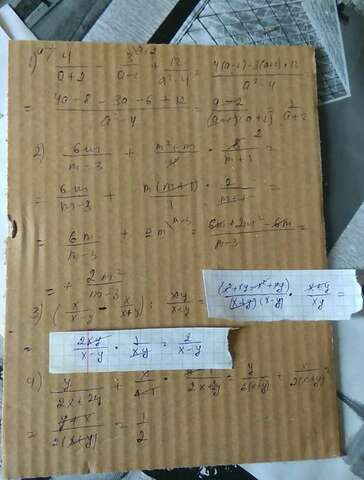 1) 4/(a+2) - 3/(a-2) + 12/(a²-4) = (4(a-2)-3(a+2)+12)/(a²-4)
= (4a-8-3a-6+12)/(a²-4) = (a-2)/((a-2)(a+2)) = 1/(a+2)
2) 6m/(m-3) + (m²+m)/4 · 8/(m+1) =
= 6m/(m-3) + m(m+1)/1 · 2/(m+1) =
= 6m/(m-3) + 2m = (6m+2m²-6m)/(m-3) =
= 2m²/(m-3)
3) (x/(x-y) - x/(x+y)) : xy/(x+y) = (x²+xy-x²+xy)/((x+y)(x-y)) · (x+y)/xy =
= 2xy/(x-y) · 1/xy = 2/(x-y)
4) y/(2x+2y)
= (y+x)/(2(x+y)) = 1/2